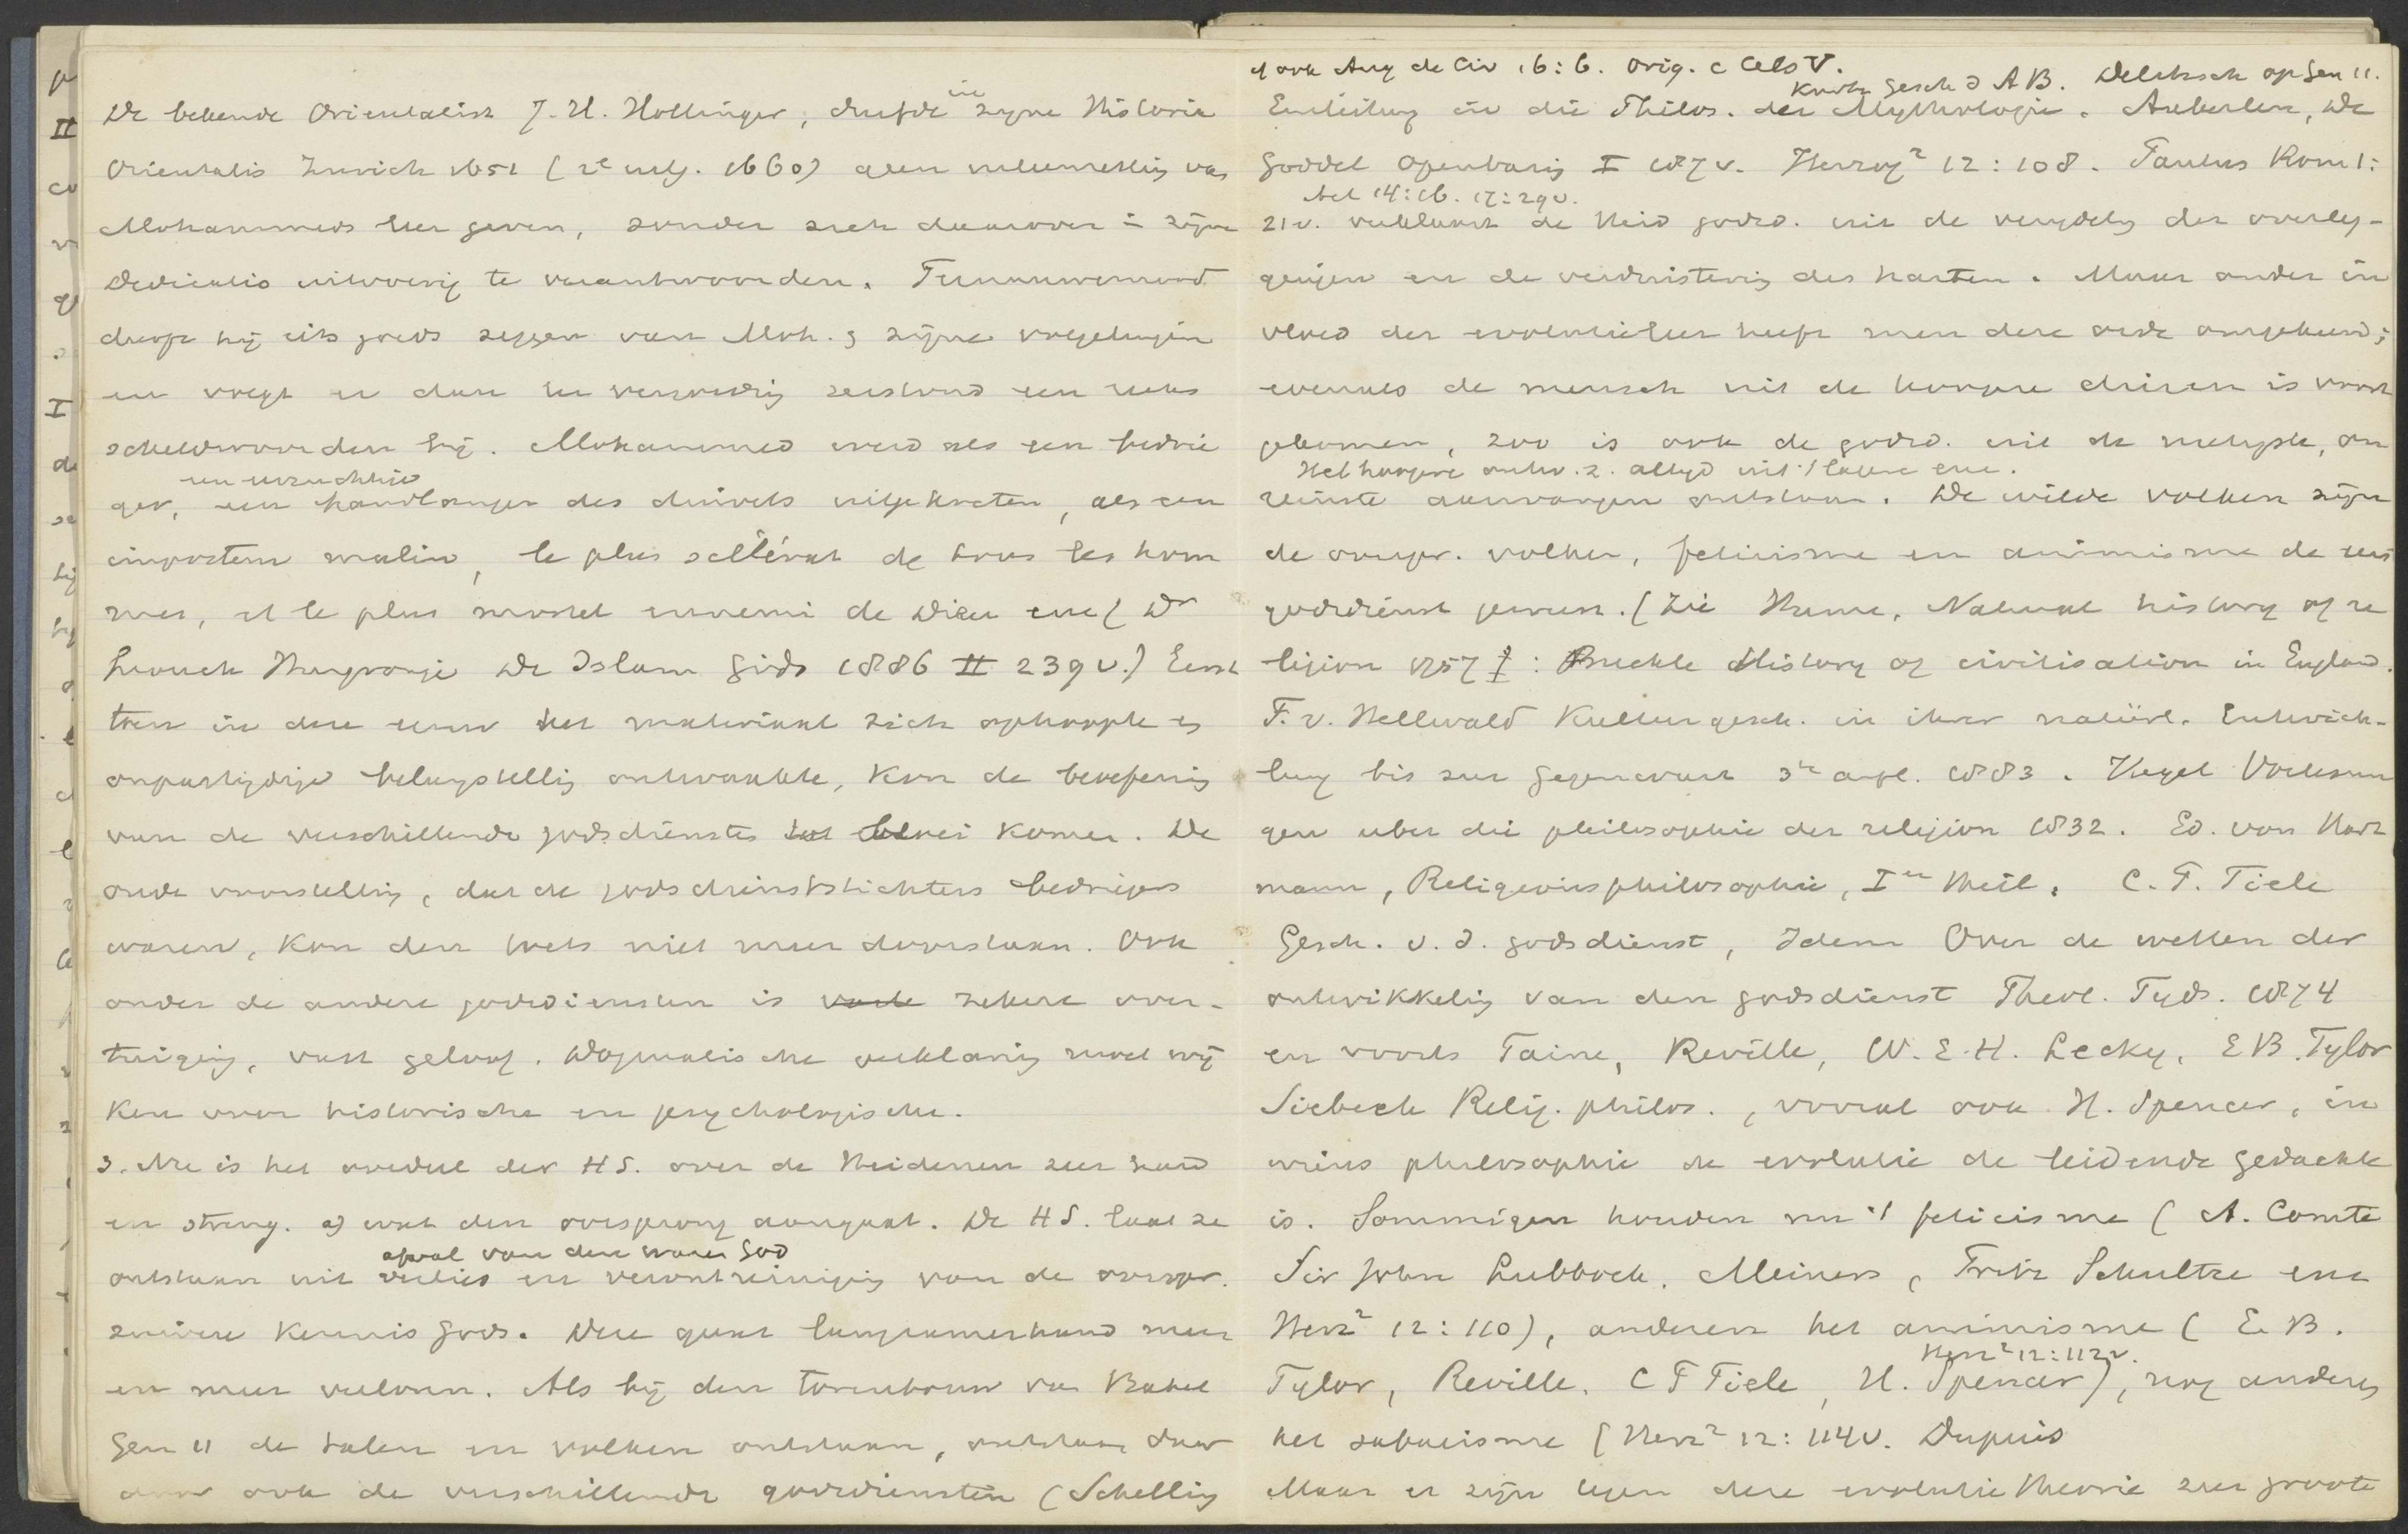 De bekende Orientalist J. H. Hottinger, durfde in zyne Historia
Orientalis Zurich 1651 (2e uitg. 1660) geen uiteenzetting van
Mohammeds leer geven, zonder zich daarover in zijne
dedicatio uitvoerig te verantwoorden. Ternauwernood
durft hij iets goeds zeggen van Moh. & zijne volgelingen
en voegt er dan ter vergoeding terstond een reeks
scheldwoorden bij. Mohammed werd als een bedrie
ger, een handlanger des duivels uitgekreten, als een
imposteur malin, le plus scélérat de tous les hom
mes, et le plus mortel ennemi de Dieu enz (Dr
Snouck Hurgronje De Islam Gids 1886 II 239 v.) Eerst
toen in deze eeuw het materiaal zich ophoopte en
onpartijdige belangstelling ontwaakte, kon de beoefening
van de verschillende godsdiensten vrij komen. De
oude voorstelling, dat de godsdienststichters bedriegers
waren, kon den toets niet meer doorstaan. Ook
onder de andere godsdiensten is vaste zekere over-
tuiging, vast geloof. Dogmatische verklaring moet wij
ken voor historische en psychologische.
3. Nu is het oordeel der HS. over de Heidenen zeer hard
en streng. a) wat den oorsprong aangaat. De HS. laat ze
afval van den waren God
ontstaan uit verlies en verontreiniging van de oorspr.
zuivere kennis Gods. Deze gaat langzamerhand meer
en meer verloren. Als bij den torenbouw van Babel
Gen 11 de talen en volken ontstaan, ontstaan daar
door ook de verschillende godsdiensten (Schelling
cf ook Aug de Civ 16:6. Orig. c Cels V.
Kurtz Gesch d A B. Delitzsch op Gen 11.
Einleitung in die Philos. der Mythologie. Auberlen, De
Goddel Openbaring I 187 v. Herzog² 12:108. Paulus Rom 1:
Act 14:16. 17:29 v.
21 v. verklaart de Heid godsd. uit de verydeling der overleg-
gingen en de verduistering des harten. Maar onder in
vloed der evolutieleer heeft men deze orde omgekeerd;
evenals de mensch uit de hoogere dieren is voort
gekomen, zoo is ook de godsd. uit de nietigste, on
Het hoogere ontw. z. altyd uit 't lagere enz.
reinste aanvangen ontstaan. De wilde volken zijn
de oorspr. volken, feticisme en animisme de eerste
godsdienst geweest. (Zie Hume, Natural history of re
ligion 1757 : Buckle History of civilisation in England.
F. v. Hellwald Kulturgesch. in ihrer natürl. Entwick-
lung bis zur Gegenwart 3te aufl. 1883. Hegel Vorlesun
gen uber die philosophie der religion 1832. Ed. von Hart
mann, Religionsphilosophie, Ier Theil. C. P. Tiele
Gesch. v. d. godsdienst, Idem Over de wetten der
ontwikkeling van den godsdienst Theol. Tyds. 1874
en voorts Taine, Reville, W. E. H. Lecky, E B. Tylor
Siebeck Relig. philos., vooral ook H. Spencer, in
wiens philosophie de evolutie de leidende gedachte
is. Sommigen houden nu 't feticisme (A. Comte
Sir John Lubbock, Meiners, Fritz Schultze enz
Herz² 12:110), anderen het animisme (E. B.
Herz² 12:112 v.
Tylor, Reville, C P Tiele, H. Spencer), nog anderen
het sabaeisme (Herz² 12:114 v. Dupuis
Maar er zijn tegen deze evolutietheorie zeer groote